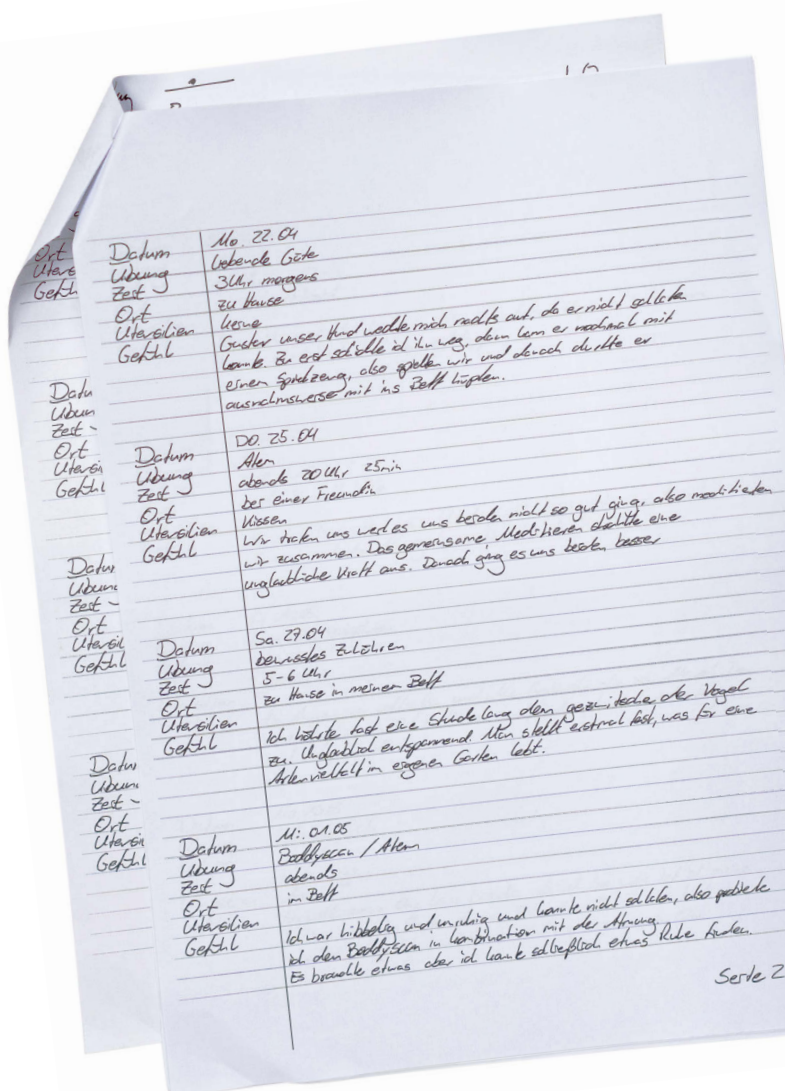 Datum Mo. 22.04
Übung liebende Güte
Zeit 3 Uhr morgens
Ort zu hause
Utensilien keine
Gefühl Gustav unser Hund weckte mich nachts auf, da er nicht schlafen
konnte. Zu erst schickte ich ihn weg, dann kam er nochmal mit
einem Spielzeug, also spielten wir und danach durfte er
ausnahmsweise mit ins Bett hüpfen.
Datum DO. 25.04
Übung Atem
Zeit abends 20 Uhr 25min
Ort bei einer Freundin
Utensilien Kissen
Gefühl Wir trafen uns weil es uns beiden nicht so gut ging, also meditierten
wir zusammen. Das gemeinsame Meditieren strahlte eine
unglaubliche Kraft aus. Danach ging es uns beiden besser
Datum Sa. 27.04
Übung bewusstes Zuhören
Zeit 5-6 Uhr
Ort zu Hause in meinem Bett
Utensilien
Gefühl Ich hörte fast eine Stunde lang dem gezwitscher der Vögel
zu. Unglaublich entspannend. Man stellt erstmal fest, was für eine
Artenvielfalt im eigenen Garten lebt.
Datum Mi. 01.05
Übung Boddyscan / Atem
Zeit abends
Ort im Bett
Utensilien
Gefühl Ich war hibbelig und unruhig und konnte nicht schlafen, also probierte
ich den Boddyscan in kombination mit der Atmung.
Es brauchte etwas aber ich konnte schließlich etwas Ruhe finden.
Seite 2
Ort
Utens
Gefühl
Datu
Übun
Zeit -
Ort
Utensi
Gefühl
Datu
Übun
Zeit -
Ort
Utensil
Gefühl
Datu
Übun
Zeit -
Ort
Utensi
Gefühl